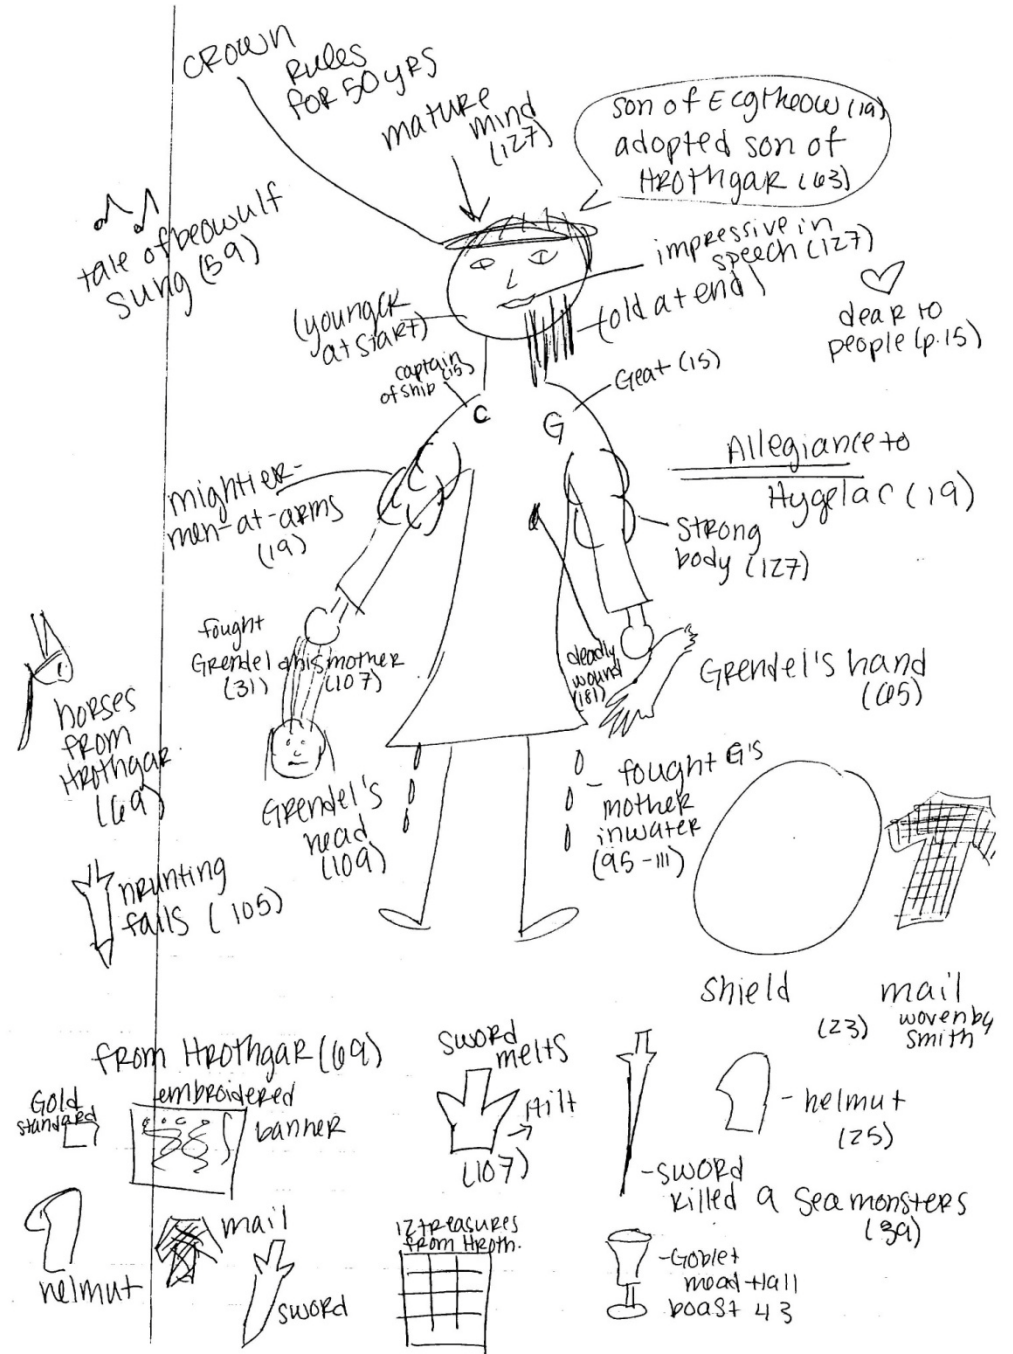 CROWN
Rules
for 50 yrs
mature
mind
(127)
son of Ecgtheow (19)
adopted son of
Hrothgar (63)
tale of beowulf
sung (59)
impressive in
speech (127)
(younger
at start)
(old at end)
dear to
people (p.15)
captain
of ship (15)
Geat (15)
C
G
Allegiance to
Hygelac (19)
mightier
men-at-arms
(19)
strong
body (127)
fought
Grendel & his mother
(31) (107)
deadly
wound
(181)
Grendel's hand
(65)
horses
from
Hrothgar
(69)
Grendel's
head
(109)
- fought G's
mother
in water
(95-111)
hrunting
fails (105)
shield
(23)
mail
woven by
smith
from Hrothgar (69)
Gold
standard
embroidered
banner
sword
melts
→ Hilt
(107)
- helmut
(25)
- sword
killed 9 sea monsters
(39)
helmut
mail
sword
12 treasures
from Hroth.
- Goblet
mead-Hall
boast 43